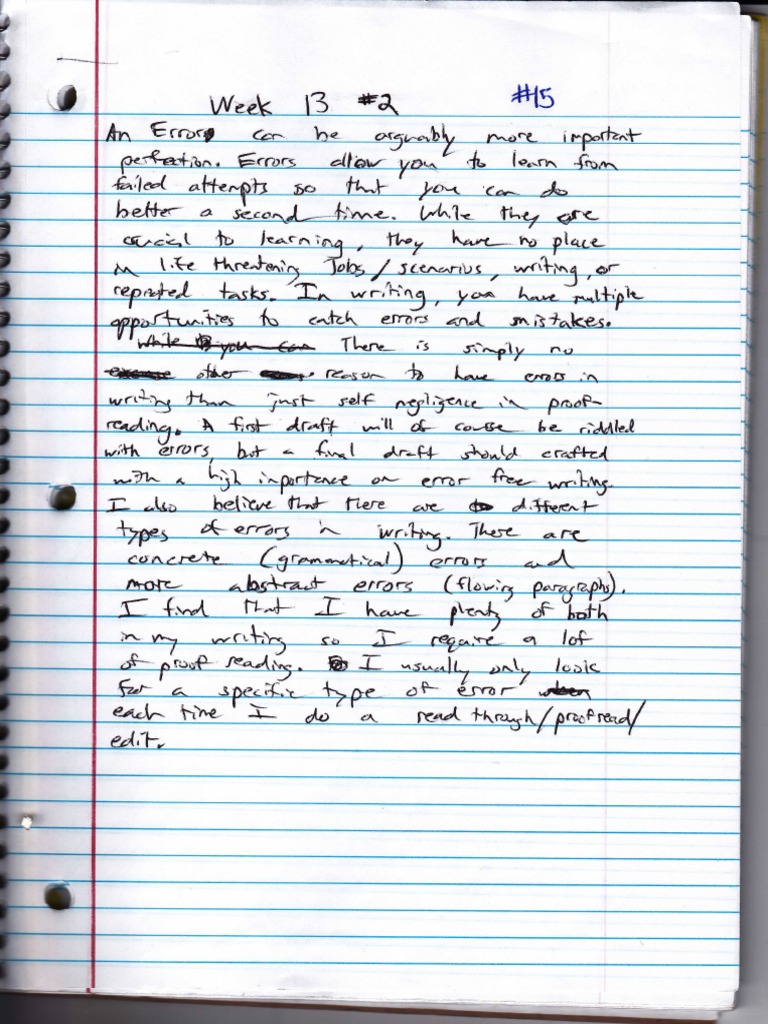 Week 13 #2 #15
An Error can be arguably more important
perfection. Errors allow you to learn from
failed attempts so that you can do
better a second time. While they are
crucial to learning, they have no place
in life threatening Jobs/scenarios, writing, or
repeated tasks. In writing, you have multiple
opportunities to catch errors and mistakes.
While you can There is simply no
excuse other reason to have errors in
writing than just self negligence in proof-
reading. A first draft will of course be riddled
with errors, but a final draft should crafted
with a high importance on error free writing.
I also believe that there are different
types of errors in writing. There are
concrete (grammatical) errors and
more abstract errors (flowing paragraphs).
I find that I have plenty of both
in my writing so I require a lot
of proof reading. I usually only look
for a specific type of error when
each time I do a read through/proofread/
edit.